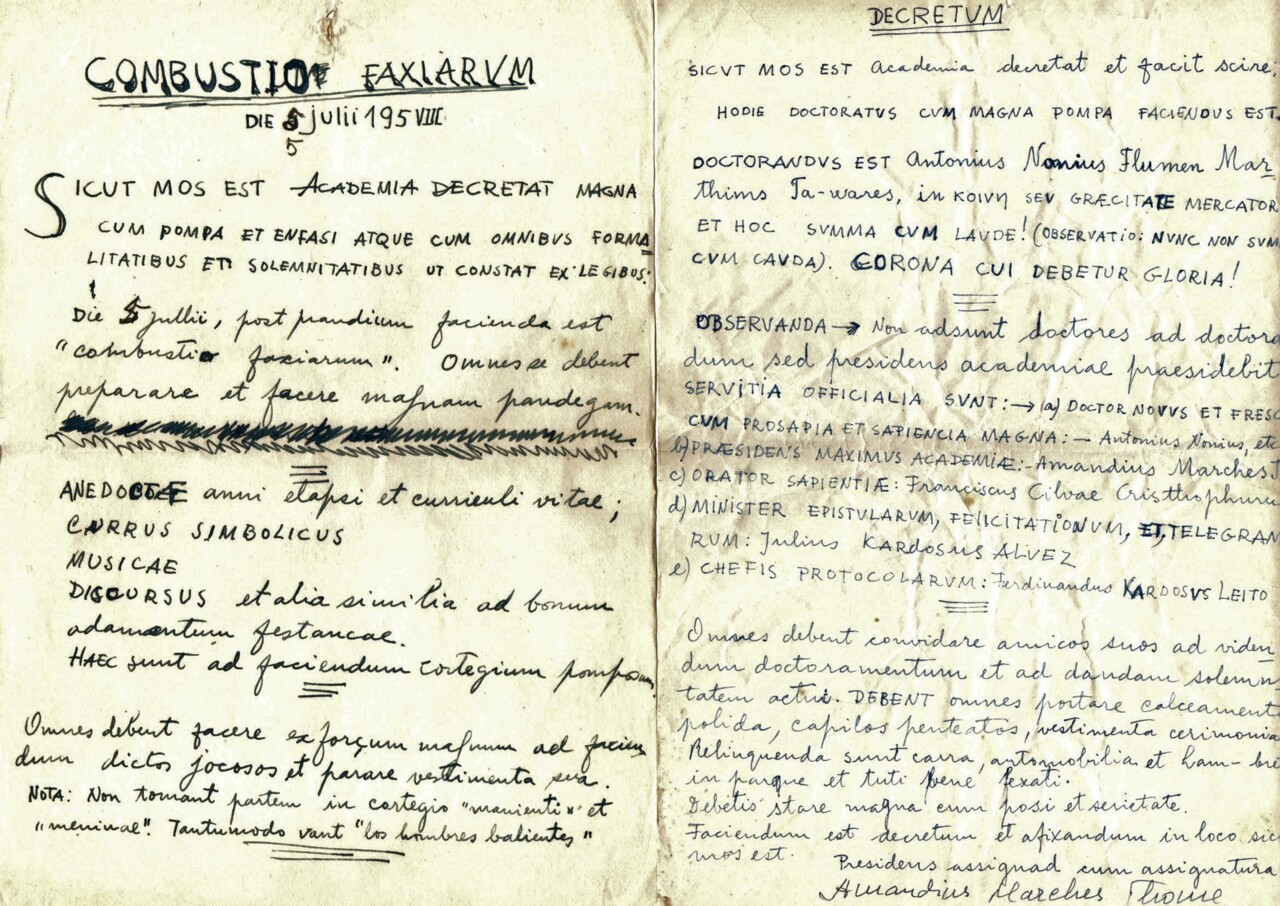 COMBUSTIO FAXIARVM
DIE 5 julii 195VIII.
5
SICUT MOS EST ACADEMIA DECRETAT MAGNA
CUM POMPA ET ENFASI ATQUE CUM OMNIBUS FORMA
LITATIBUS ET SOLEMNITATIBUS UT CONSTAT EX LEGIBUS:
Die 5 jullii, post prandium facienda est
"combustio faxiarum". Omnes se debent
preparare et facere magnam pandegam.
ANEDOCTAE anni elapsi et curriculi vitae;
CURRUS SIMBOLICUS
MUSICAE
DISCURSUS et alia similia ad bonum
adamentum festancae.
HAEC sunt ad faciendum cortegium pomposum
Omnes debent facere exforçum magnum ad facien
dum dictos jocosos et parare vestimenta sua.
NOTA: Non tomant partem in cortegio "manienti" et
"meninae". Tantumodo vant "los hombres balientes"
DECRETVM
SICVT MOS EST Academia decretat et facit scire:
HODIE DOCTORATUS CVM MAGNA POMPA FACIENDUS EST.
DOCTORANDVS EST Antonius Nonius Flumen Mar
thims Ta-wares, in KOIVη SEV GRÆCITATE MERCATOR
ET HOC SVMMA CVM LAVDE! (OBSERVATIO: NVNC NON SVM
CVM CAVDA). CORONA CUI DEBETUR GLORIA!
OBSERVANDA → Non adsunt doctores ad doctora
dum sed presidens academiae praesidebit
SERVITIA OFFICIALIA SUNT: → a) DOCTOR NOVVS ET FRESC
CVM PROSAPIA ET SAPIENCIA MAGNA: — Antonius Nonius, etc
b) PRÆSIDENS MAXIMVS ACADEMIÆ: - Amandius Marches T
c) ORATOR SAPIENTIÆ: Franciscus Cilvae Cristthophuru
d) MINISTER EPISTULARVM, FELICITATIONVM, ET, TELEGRAN
RUM: Julius KARDOSUS ALVEZ
e) CHEFIS PROTOCOLARVM: Ferdinandus KARDOSVS LEITO
Omnes debent convidare amicos suos ad viden
dum doctoramentum et ad dandam solemn
tatem actui. DEBENT omnes portare calceament
polida, capilos penteatos, vestimenta cerimonia
Relinquenda sunt carra, automobilia et ham-bre
in parque et tuti bene fexati.
Debetis stare magna cum posi et serietate.
Faciendum est decretum et afixandum in loco sic
mos est.
Presidens assignad cum assignatura
Amandius Marches Thome